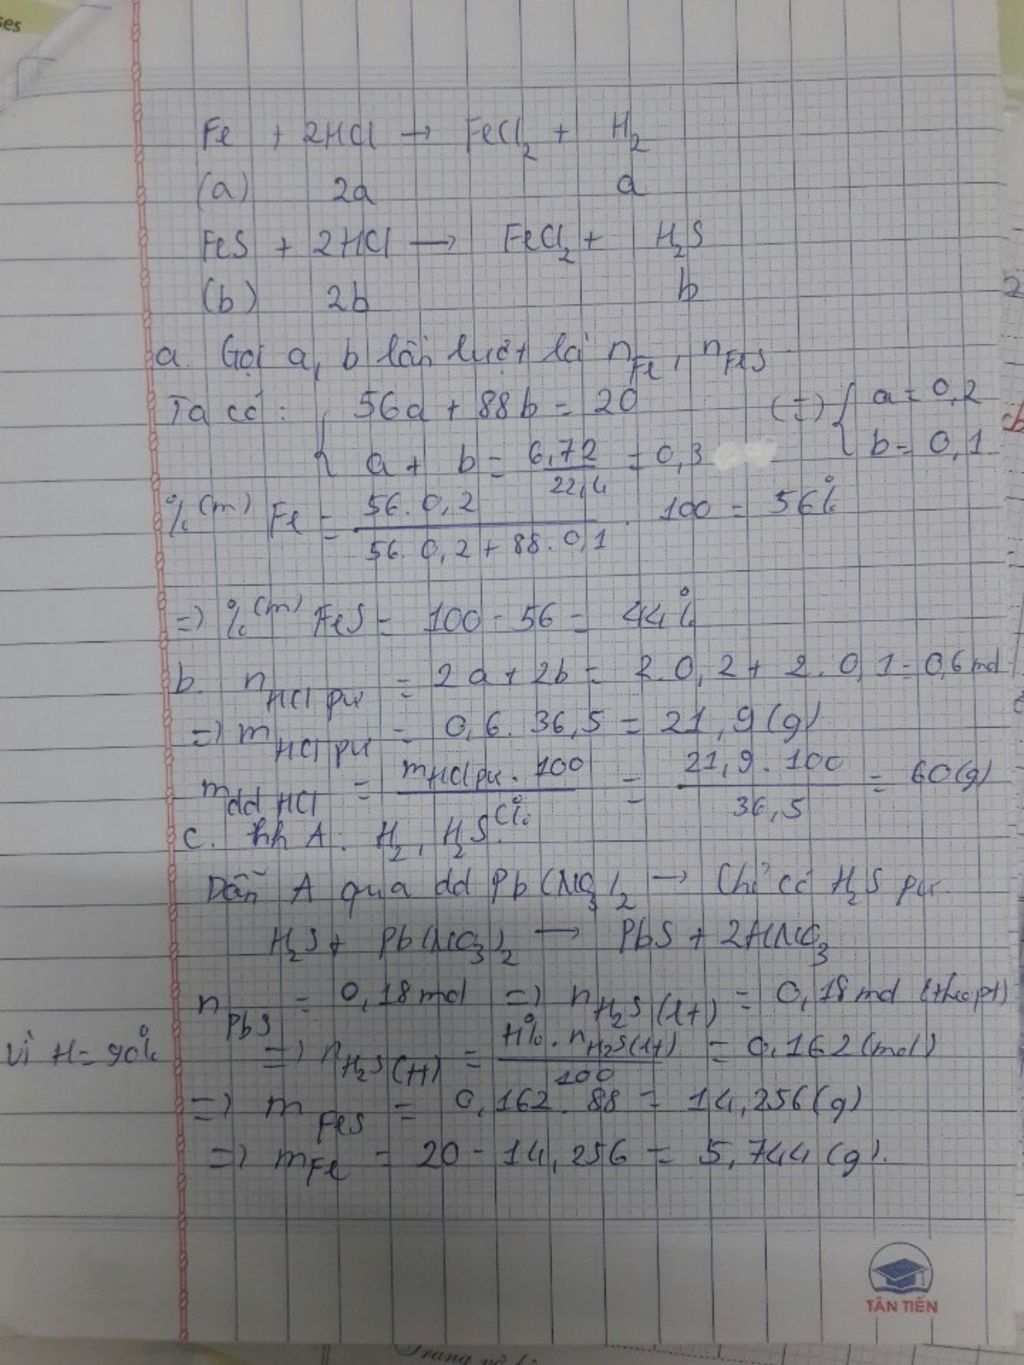 ses
Fe + 2HCl → FeCl₂ + H₂
(a) 2a a
FeS + 2HCl → FeCl₂ + H₂S
(b) 2b b
a. Gọi a, b lần lượt là n_Fe, n_FeS
Ta có: { 56a + 88b = 20 (=) { a = 0,2
a + b = 6,72/22,4 = 0,3 b = 0,1
%(m) Fe = (56. 0,2)/(56. 0,2 + 88. 0,1) . 100 = 56%
=) %(m) FeS = 100 - 56 = 44%
b. n_HCl pư = 2a + 2b = 2. 0,2 + 2. 0,1 = 0,6 mol
=) m_HCl pư = 0,6. 36,5 = 21,9 (g)
m_dd HCl = (m_HCl pư . 100)/C% = (21,9. 100)/36,5 = 60 (g)
c. hh A: H₂, H₂S.
Dẫn A qua dd Pb(NO₃)₂ → Chỉ có H₂S pư
H₂S + Pb(NO₃)₂ → PbS + 2HNO₃
n_PbS = 0,18 mol =) n_H₂S (lt) = 0,18 mol (theo pt)
Vì H = 90% =) n_H₂S (H) = (H% . n_H₂S (lt))/100 = 0,162 (mol)
=) m_FeS = 0,162. 88 = 14,256 (g)
=) m_Fe = 20 - 14,256 = 5,744 (g).
TÂN TIẾN